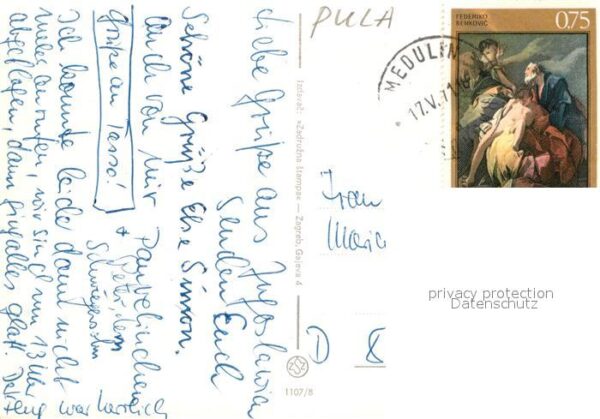 PULA
FEDERIKO
BENKOVIĆ
0,75
MEDULIN
17.V.71
Liebe Grüße aus Jugoslawien
senden Euch
Schöne Grüße Else Simon.
auch von mir
grüße an Tasso!
Ich konnte leider damit nicht
mehr anrufen, wir sind um 13 Uhr
abgeflogen, dann ging alles glatt. Der
war herrlich
Izdavač: »Zadružna štampa« — Zagreb, Gajeva 4
1107/8
Frau
Maria
D 8
privacy protection
Datenschutz